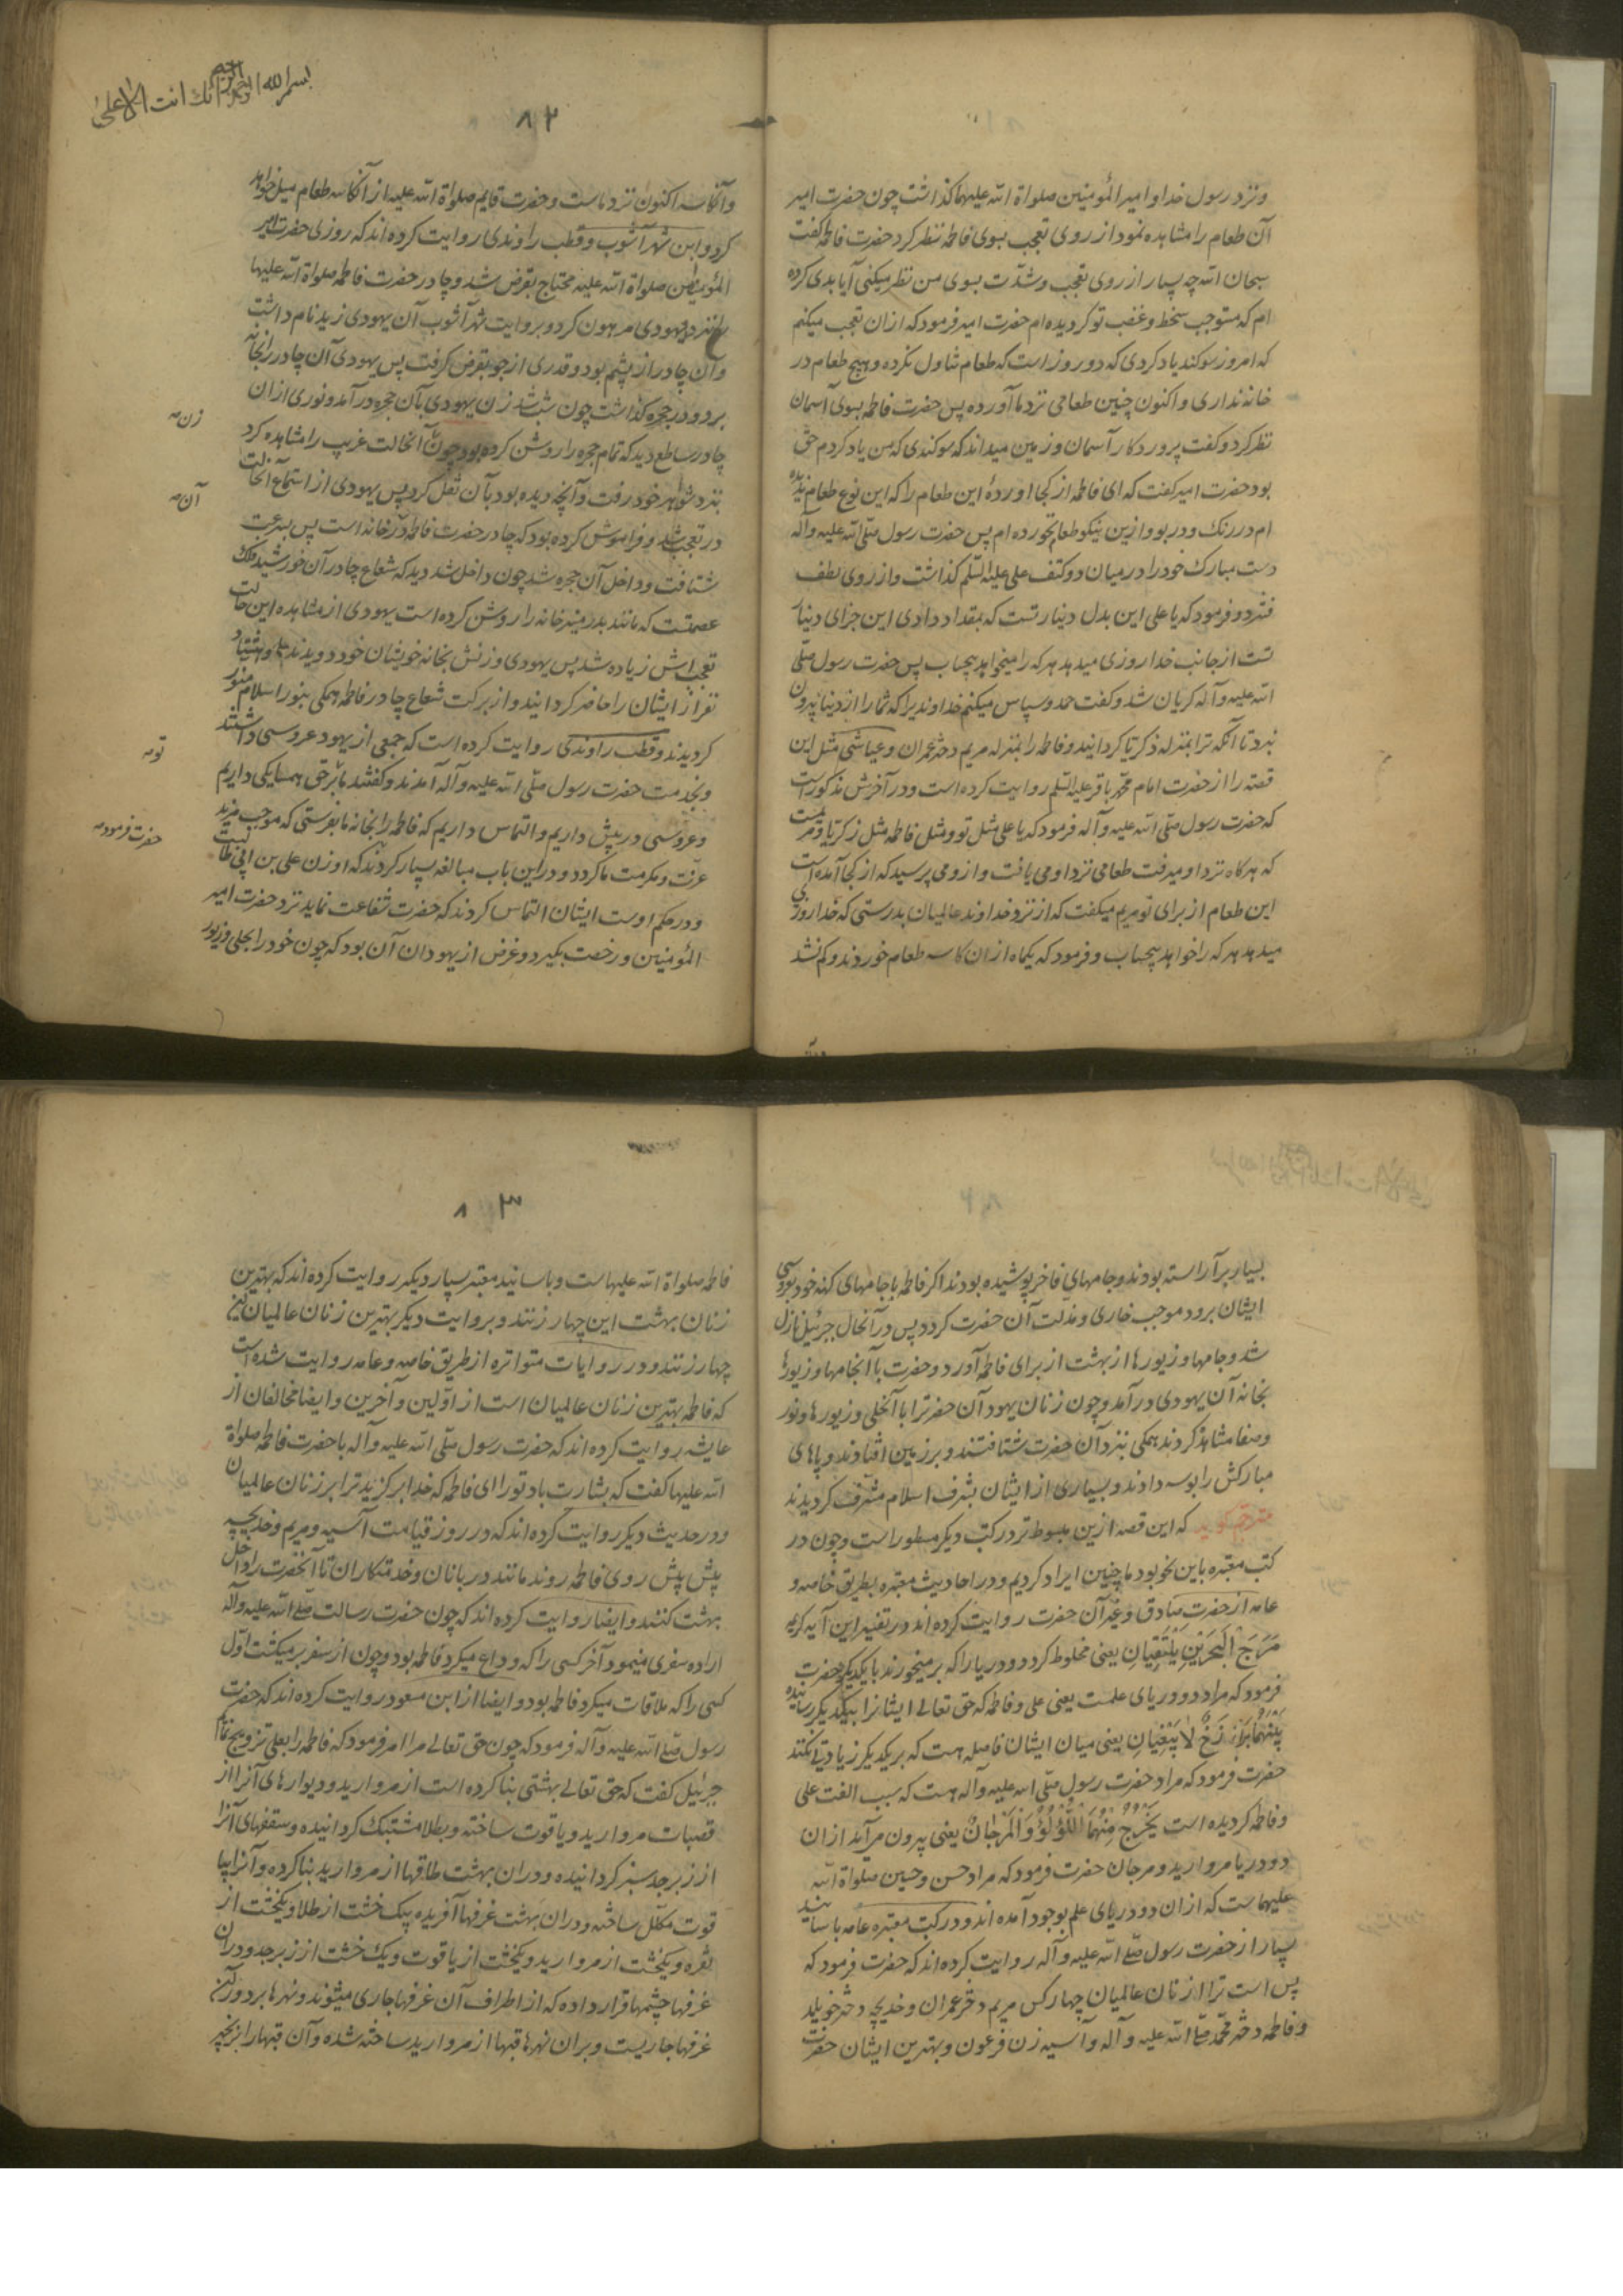 ونزد رسول خدا و امیرالمؤمنین صلواة الله علیهما کذاشت چون حضرت امیر
آن طعام را مشاهده نمود از روی تعجب بسوی فاطمه نظر کرد حضرت فاطمه کفت
سبحان الله چه بسیار از روی تعجب وشدّت بسوی من نظر میکنی آیا بدی کرده
ام که مستوجب سخط وغضب تو کردیده ام حضرت امیر فرمود که ازان تعجب میکنم
که امروز سوکند یاد کردی که دو روز است که طعام تناول نکرده و هیچ طعام در
خانه نداری و اکنون چنین طعامی نزد ما آورده پس حضرت فاطمه بسوی آسمان
نظر کرد وکفت پروردکار آسمان وزمین میداند که سوکندی که من یاد کردم حق
بود حضرت امیر کفت که ای فاطمه از کجا اوردهٔ این طعام را که این نوع طعام ندیده
ام در رنک ودر بو وازین نیکو طعام نخورده ام پس حضرت رسول صلّی الله علیه وآله
دست مبارک خود را در میان دو کتف علی علیه السّلم کذاشت واز روی لطف
فشرد و فرمود که یا علی این بدل دینار تست که بمقداد دادی این جزای دینار
تست از جانب خدا روزی میدهد هر که را میخواهد بیحساب پس حضرت رسول صلّی
الله علیه وآله کریان شد وکفت حمد وسپاس میکنم خداوندیرا که شما را از دنیا بیرون
نبرد تا آنکه ترا بمنزله ذکریّا کردانید وفاطمه را بمنزله مریم دختر عمران وعیاشی مثل این
قصّه را از حضرت امام محمّد باقر علیه السّلم روایت کرده است ودر آخرش مذکور است
که حضرت رسول صلّی الله علیه وآله فرمود که یا علی مثل تو ومثل فاطمه مثل زکریّا ومریمست
که هرکاه نزد او میرفت طعامی نزد او می یافت وازو می پرسید که از کجا آمده است
این طعام از برای تو مریم میکفت که از نزد خداوند عالمیان بدرستی که خدا روزی
میدهد هر که را خواهد بیحساب وفرمود که یکماه ازان کاسه طعام خوردند وکم نشد
بسم الله الرحمن الرحیم
انک انت الاعلی
۸۲
وآنکاسه اکنون نزد ماست وحضرت قایم صلواة الله علیه از آنکاسه طعام میل خواهد
کرد وابن شهرآشوب وقطب راوندی روایت کرده اند که روزی حضرت امیر
المؤمنین صلواة الله علیه محتاج بقرض شد وچادر حضرت فاطمه صلواة الله علیها
را نزد یهودی مرهون کرد و بروایت شهرآشوب آن یهودی زید نام داشت
وآن چادر از پشم بود وقدری از جو بقرض کرفت پس یهودی آن چادر را بخانه
برد ودر حجره کذاشت چون شب شد زن یهودی بآن حجره در آمد ونوری ازان
چادر ساطع دید که تمام حجره را روشن کرده بود چون آنحالت غریب را مشاهده کرد
زن
نزد شوهر خود رفت وآنچه دیده بود بآن نقل کرد پس یهودی از استماع آنحالت
آن
در تعجب شد وفراموش کرده بود که چادر حضرت فاطمه در آنخانه است پس بسرعت
شتافت وداخل آن حجره شد چون داخل شد دید که شعاع چادر آن خورشید فلک
عصمتست که مانند بدر منیر خانه را روشن کرده است یهودی از مشاهده این حالت
تعجبش زیاده شد پس یهودی وزنش بخانه خویشان خود دویدند وهشتاد
نفر از ایشان را حاضر کردانیدند واز برکت شعاع چادر فاطمه همکی بنور اسلام منوّر
کردیدند وقطب راوندی روایت کرده است که جمعی از یهود عروسی داشتند
وبخدمت حضرت رسول صلّی الله علیه وآله آمدند وکفتند ما را بر تو حق همسایکی داریم
تو
وعروسی در پیش داریم والتماس داریم که فاطمه را بخانه ما بفرستی که موجب مزید
عزّت ومکرمت ما کردد ودر این باب مبالغه بسیار کردند که او زن علی بن ابی طالبست
حضرت فرمود
ودر حکم اوست ایشان التماس کردند که حضرت شفاعت نماید نزد حضرت امیر
المؤمنین ورخصت بکیرد وغرض از یهودان آن بود که چون خود را بحلی وزیور
بسیار برآراسته بودند وجامهای فاخر پوشیده بودند اکر فاطمه با جامهای کهنه خود بعروسی
ایشان برود موجب خاری ومذلت آن حضرت کردد پس در آنحال جبرئیل نازل
شد وجامها وزیورها از بهشت از برای فاطمه آورد وحضرت با آنجامها وزیورها
بخانه آن یهودی در آمد وچون زنان یهود آن حضرترا با آنحلی وزیورها ونور
وصفا مشاهده کردند همکی بنزد آن حضرت شتافتند وبر زمین افتادند وپاهای
مبارکش را بوسه دادند وبسیاری از ایشان بشرف اسلام مشرّف کردیدند
مترجم کوید که این قصه ازین مبسوط تر در کتب دیکر مسطور است وچون در
کتب معتبره باین نحو بود ما چنین ایراد کردیم ودر احادیث معتبره بطریق خاصه و
عامه از حضرت صادق وغیر آن حضرت روایت کرده اند در تفسیر این آیه کریمه
مَرَجَ الْبَحْرَیْنِ یَلْتَقِیَانِ یعنی مخلوط کرد دو دریا را که بر میخورند با یکدیکر حضرت
فرمود که مراد دو دریای علمست یعنی علی وفاطمه که حق تعالی ایشانرا بیکدیکر رسانیده
بَیْنَهُمَا بَرْزَخٌ لَا یَبْغِیَانِ یعنی میان ایشان فاصله هست که بر یکدیکر زیادتی نکنند
حضرت فرمود که مراد حضرت رسول صلّی الله علیه وآله هست که سبب الفت علی
وفاطمه کردیده است یَخْرُجُ مِنْهُمَا اللُّؤْلُؤُ وَالْمَرْجَانُ یعنی بیرون میآید ازان
دو دریا مروارید ومرجان حضرت فرمود که مراد حسن وحسین صلواة الله
علیهماست که ازان دو دریای علم بوجود آمده اند ودر کتب معتبره عامه باسانید
بسیار از حضرت رسول صلّی الله علیه وآله روایت کرده اند که حضرت فرمود که
پس است ترا از زنان عالمیان چهار کس مریم دختر عمران وخدیجه دختر خویلد
وفاطمه دختر محمّد صلّی الله علیه وآله وآسیه زن فرعون وبهترین ایشان حضرت
۸۳
فاطمه صلواة الله علیهاست وباسانید معتبر بسیار دیکر روایت کرده اند که بهترین
زنان بهشت این چهار زنند وبروایت دیکر بهترین زنان عالمیان این
چهار زنند ودر روایات متواتره از طریق خاصه وعامه روایت شده است
که فاطمه بهترین زنان عالمیان است از اوّلین وآخرین وایضا مخالفان از
عایشه روایت کرده اند که حضرت رسول صلّی الله علیه وآله با حضرت فاطمه صلواة
الله علیها کفت که بشارت باد تو را ای فاطمه که خدا برکزید ترا بر زنان عالمیان
ودر حدیث دیکر روایت کرده اند که در روز قیامت آسیه ومریم وخدیجه
پیش پیش روی فاطمه روند مانند دربانان وخدمتکاران تا آنحضرت را داخل
بهشت کنند وایضا روایت کرده اند که چون حضرت رسالت صلّی الله علیه وآله
اراده سفری مینمود آخر کسی را که وداع میکرد فاطمه بود وچون از سفر بر میکشت اوّل
کسی را که ملاقات میکرد فاطمه بود وایضا از ابن مسعود روایت کرده اند که حضرت
رسول صلّی الله علیه وآله فرمود که چون حق تعالی مرا امر فرمود که فاطمه را بعلی تزویج نمایم
جبرئیل کفت که حق تعالی بهشتی بنا کرده است از مروارید ودیوارهای آنرا از
قصبات مروارید ویاقوت ساخته وبطلا مشبّک کردانیده وسقفهای آنرا
از زبرجد سبز کردانیده ودران بهشت طاقها از مروارید بنا کرده وآنرا بیا
قوت مکلّل ساخته ودران بهشت غرفها آفریده یک خشت از طلا ویکخشت از
نقره ویکخشت از مروارید ویکخشت از یاقوت ویک خشت از زبرجد ودران
غرفها چشمها قرار داده که از اطراف آن غرفها جاری میشوند ونهرها بر دور آن
غرفها جاریست وبران نهرها قبها از مروارید ساخته شده وآن قبها را بزنجیر